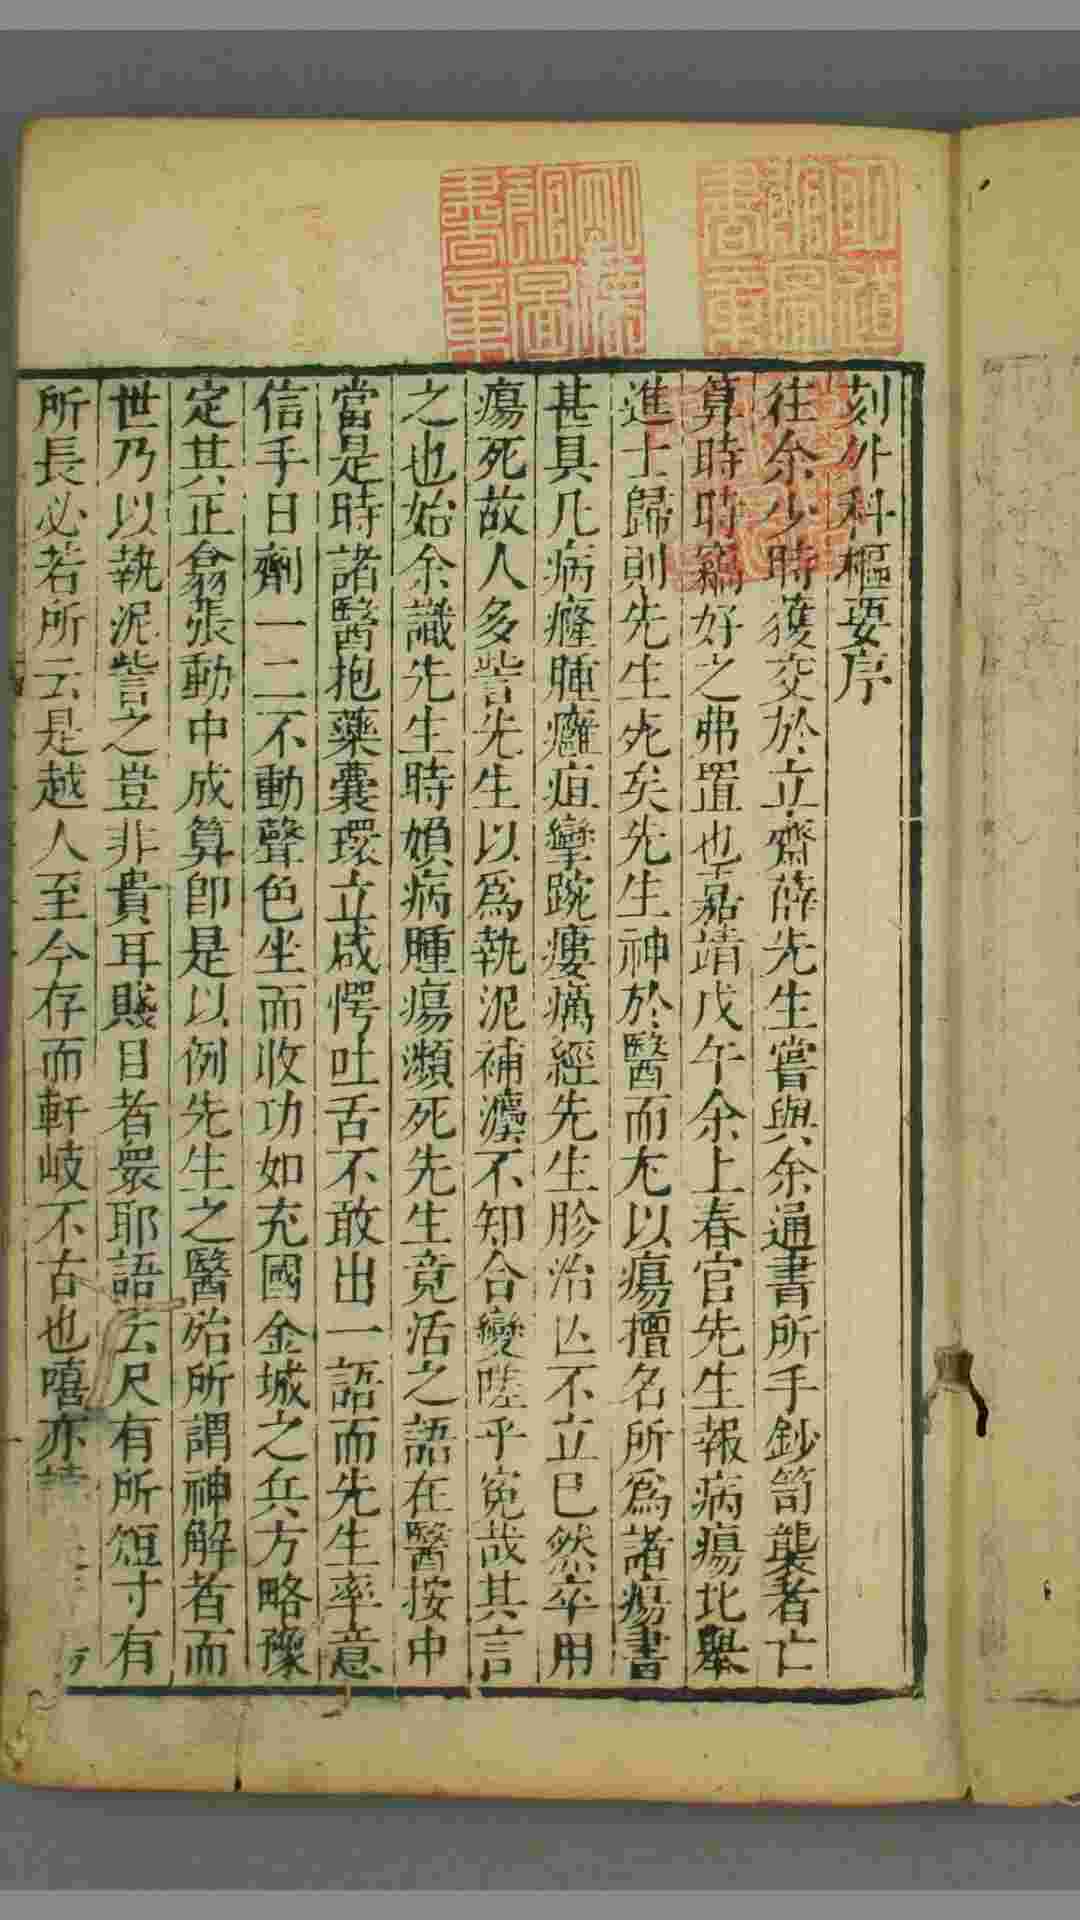 刻外科樞要序
往余少時獲交於立齋薛先生嘗與余通書所手鈔笥襲者亡
算時時竊好之弗置也嘉靖戊午余上春官先生報病瘍比舉
進士歸則先生死矣先生神於醫而尤以瘍擅名所爲諸瘍書
甚具凡病癃腫癰疽攣踠瘻痛經先生胗治亾不立已然卒用
瘍死故人多訾先生以爲執泥補瀉不知合變嗟乎寃哉其言
之也始余識先生時媍病腫瘍瀕死先生竟活之語在醫按中
當是時諸醫抱藥囊環立咸愕吐舌不敢出一語而先生率意
信手日劑一二不動聲色坐而收功如充國金城之兵方略豫
定其正翕張動中成算卽是以例先生之醫殆所謂神解者而
世乃以執泥訾之豈非貴耳賤目者衆耶語云尺有所短寸有
所長必若所云是越人至今存而軒岐不古也嘻亦